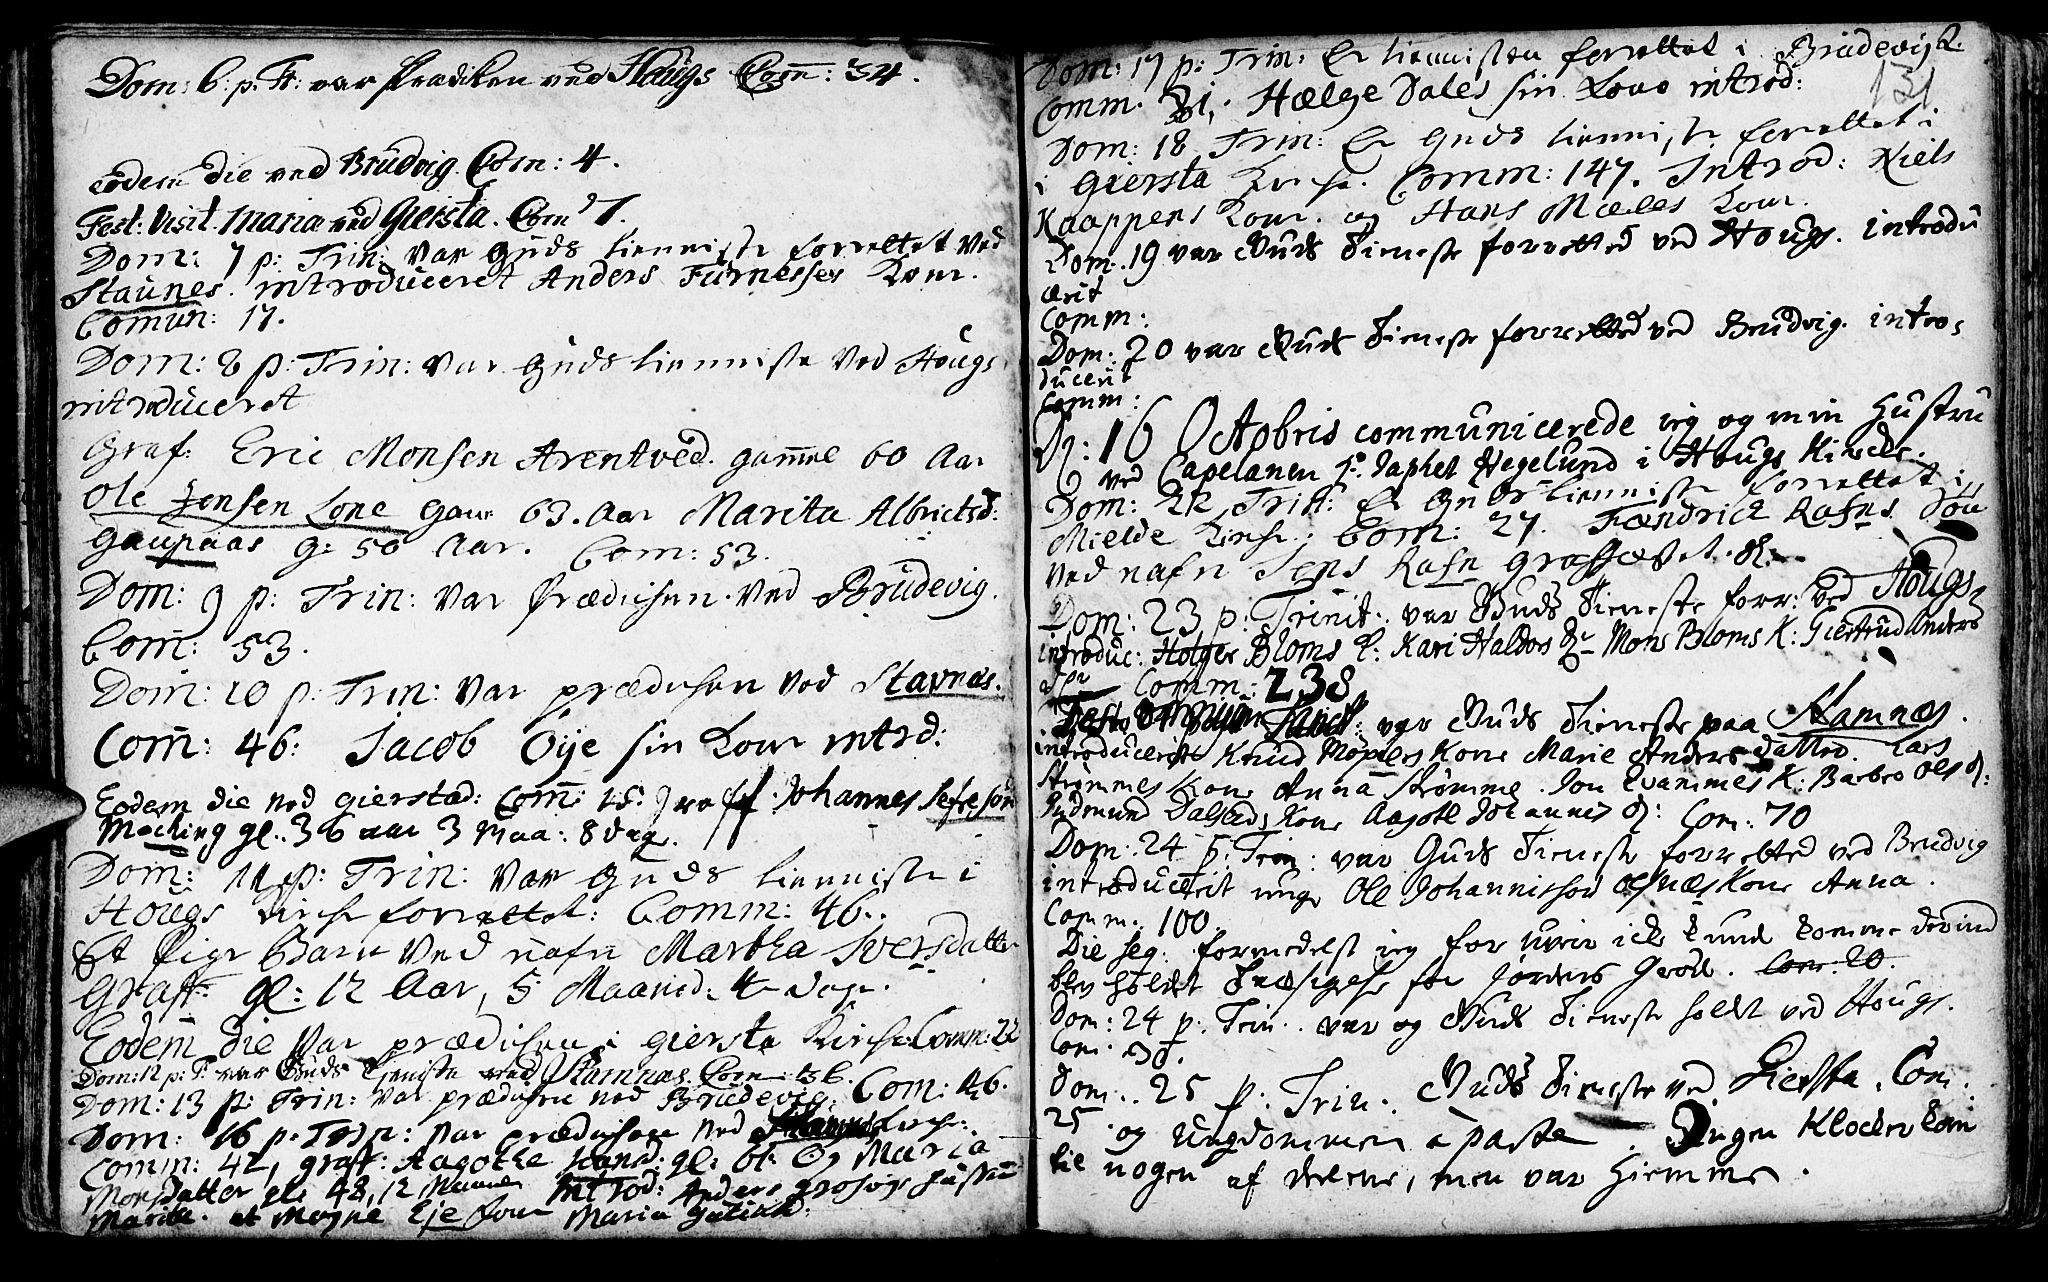 Dom: 6: p. Tr: var Prædiken ved Hougs Com: 34.
eodem die ved Brudvig. Com: 4.
Fest: Visit. Maria ved Giersta. Com 7.
Dom: 7 p: Trin: var Guds tienniste forrettet ved
Staunes. introduceret Anders Furnesses Kone.
Comun: 17.
Dom: 8 p: Trin: var Guds tienniste ved Hougs
introduceret
Graf: Eric Monsen Arentved. gamel 60 Aar
Ole Jensen Lone gam 63. Aar Marita Albrictsd:
Gaupaas g: 50 Aar. Com: 53.
Dom: 9 p: Trin: var Prædichen ved Brudevig.
Com: 53.
Dom: 10 p: Trin: var prædichen ved Stavnæs.
Com: 46: Jacob Öÿe sin Kone introd:
Eodem die ved gierstad: Com: 15: Graff. Johannes Sefresön
Mocking gl. 36 aar 3 Maa: 8 dage.
Dom: 11 p: Trin: var Guds tienniste i
Hougs Kirche forrettet: Comm: 46.
Et Pige Barn ved nafn Martha Iversdatter
Graft: gl: 12 Aar, 5 Maaned: 4 dage.
Eodem die var prædichen i giersta Kirche Comm: 22
Dom: 12 p: T. var Guds Tjeniste ved Stamnæs. Com: 36.
Dom: 13 p: Trin: var prædichen ved Brudevig. Com: 46.
Dom: 16 p: Trin: var prædichen ved Kirche.
Comm: 42, graft: Aagothe Hansd: gl: Og Maria
Monsdatter gl: 48, 12 Introd: Anders hustru
Marita. et Mogne Eje Kone Maria
Dom: 17 p: Trin: Er tiennisten forrettet i Brudevigk.
131
Comm. 31. Hælge Dales sin Kone introd:
Dom: 18 Trin: Er Guds tienniste forrettet i
i Giersta Kirche. Comm: 147. Introd: Niels
Knappens Kone. og Hans Mæles Kone.
Dom: 19 var Guds Tieneste forretted ved Hougs. introdu
cerit
Comm:
Dom: 20 var Guds Tieneste forretted ved Brudvig. intro
ducerit
Comm:
D: 16 Octobris communicerede ieg og min Hustru
ved Capelanen Hr. Japhet Hegelund i Hougs Kircke.
Dom: 22 Trin: Er Guds tienniste forrettet i
Mielde Kirche: Com: 27. Fændrick Rafns Søn
ved nafn Jens Rafn Graffæstet.
Dom: 23 p: Trinit: var Guds Tieneste forr: ved Hougs
introduc: Holger Bloms K: Kari Haldors Dr Mons Bloms K: Giertrud Anders
dr Comm: 238
Festo Omnium Sanct: var Guds Tieneste paa Stamnæs.
introducerit Knud Mopels Kone Marie Anders datter. Lars
Strømmes Kone Anna Strømme. Jon Qvammes K: Barbro Ols d:
Gudmund Dalseids Kone Aagote Johannes d: Com: 70
Dom: 24 p: Trin: var Guds Tieneste forretted ved Brudvig
introducerit unge Ole Johannissøn Olsnæs Kone Anna.
Comm: 100.
Die seq: formedelst ieg for uveir icke kunde komme derind
blev holdt Tacksigelse for Jordens Grøde. Com: 20.
Dom: 24 p: Trin: var og Guds Tieneste holdt ved Hougs.
Com: 30.
Dom: 25 p: Trin: Guds Tieneste ved Giersta. Com:
25 og Ungdommen a parte. Ingen Klocker kom
tie nogen af delene, men var Hiemme.